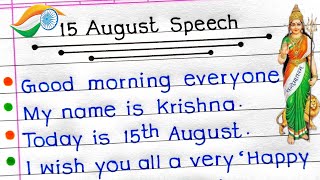 15 August Speech
Good morning everyone
My name is Krishna.
Today is 15th August.
I wish you all a very 'Happy